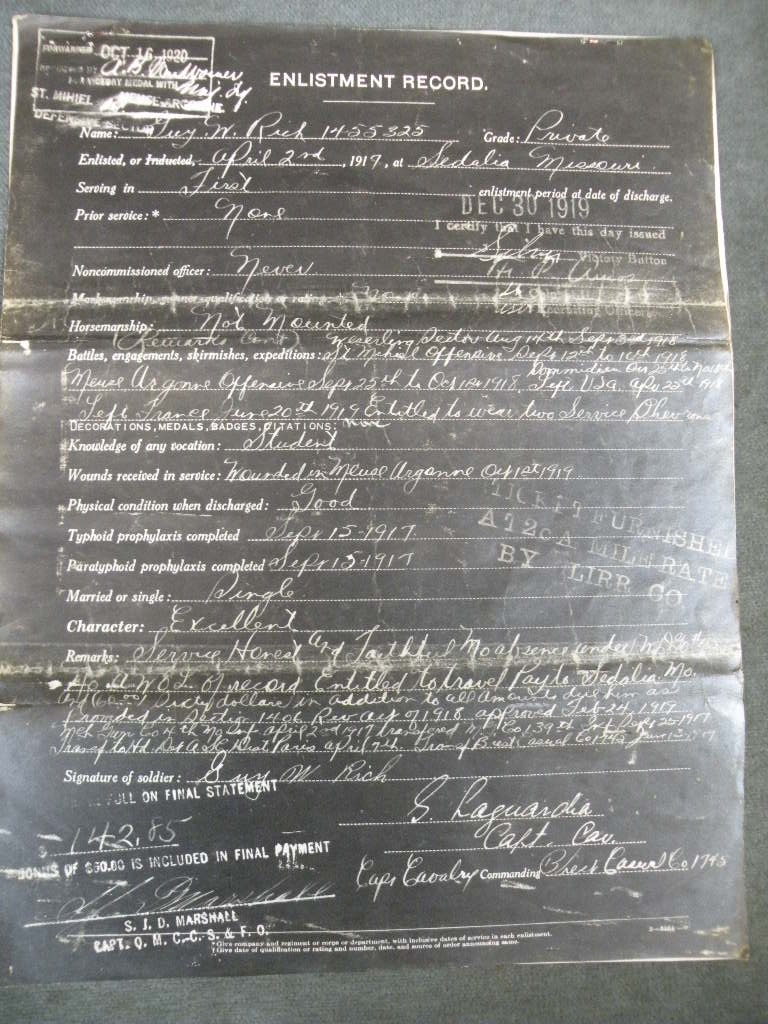 FORWARDED OCT 16 1920
A.B.
VICTORY MEDAL WITH
ST. MIHIEL MEUSE-ARGONNE.
DEFENSIVE SECTOR
ENLISTMENT RECORD.
Name: Guy W. Rich 1455325 Grade: Private
Enlisted, or Inducted, April 2nd, 1917, at Sedalia Missouri
Serving in First enlistment period at date of discharge.
DEC 30 1919
Prior service:* None
I certify that I have this day issued
Silver Victory Button
Noncommissioned officer: Never
Marksmanship, gunner qualification or rating:
Recruiting Officer
Horsemanship: Not Mounted
(Remarks Cont) Weserling Sector Aug 14th Sept 3rd 1918
Battles, engagements, skirmishes, expeditions: St Mihiel Offensive Sept 12th to 16th 1918
Meuse Argonne Offensive Sept 25th to Oct 1st 1918, Left USA. Apr 25th 1918
Left France June 20th 1919 Entitled to wear two Service Chevrons
DECORATIONS, MEDALS, BADGES, CITATIONS; None
Knowledge of any vocation: Student
Wounds received in service: Wounded in Meuse Argonne Oct 1st 1919
Physical condition when discharged: Good
TICKET FURNISHED
AT 2c A MILE RATE
BY LIRR CO
Typhoid prophylaxis completed Sept 15-1917
Paratyphoid prophylaxis completed Sept 15-1917
Married or single: Single
Character: Excellent
Remarks: Service Honest and Faithful No absence under
No A.W.O.L. of record Entitled to travel Pay to Sedalia Mo.
and 60.00 Sixty dollars in addition to all amounts due him as
Provided in Section 1406 Rev Act of 1918 approved Feb 24, 1919
Mch Gun Co 4th Mo Inf April 2nd 1917 transfered M G Co 139th Inf Sept 25 1917
Transf to Hd Det A.S.C. Dist Paris April 7th Transf Brest Casual Co 1745
Signature of soldier: Guy W Rich
FULL ON FINAL STATEMENT
$ 142.85
S. Laguardia
Capt. Cav.
BONUS OF $60.00 IS INCLUDED IN FINAL PAYMENT
Capt Cavalry Commanding Brest Casual Co 1745
S. J. D. MARSHALL
CAPT. Q. M. C. C. S. & F. O.
*Give company and regiment or corps or department, with inclusive dates of service in each enlistment.
†Give date of qualification or rating and number, date, and source of order announcing same.